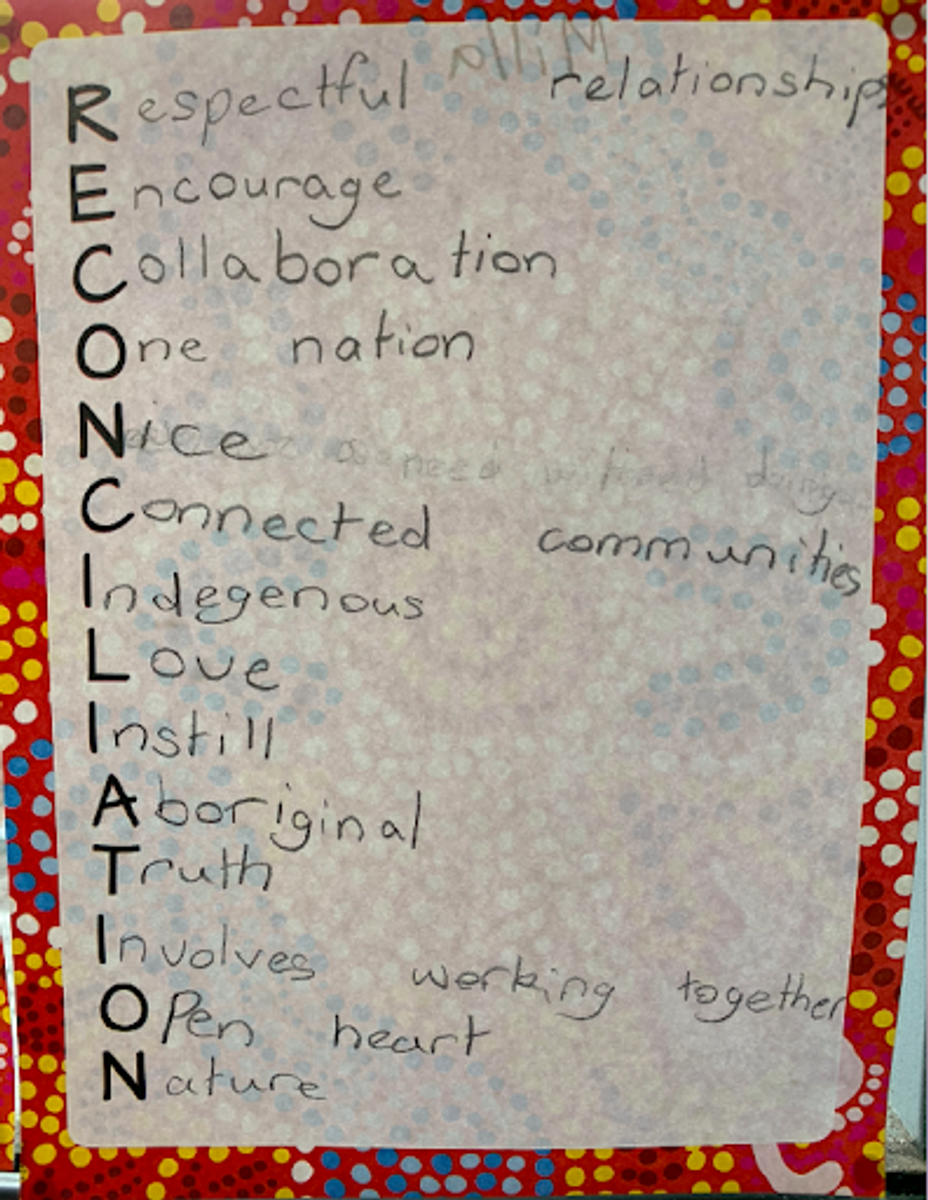 Milla
Respectful relationships
Encourage
Collaboration
One nation
Nice
Connected communities
Indegenous
Love
Instill
Aboriginal
Truth
Involves working together
Open heart
Nature